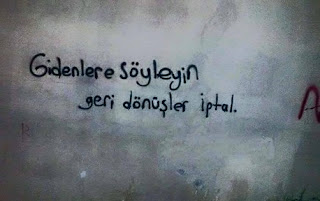 Gidenlere söyleyin
geri dönüşler iptal.
A